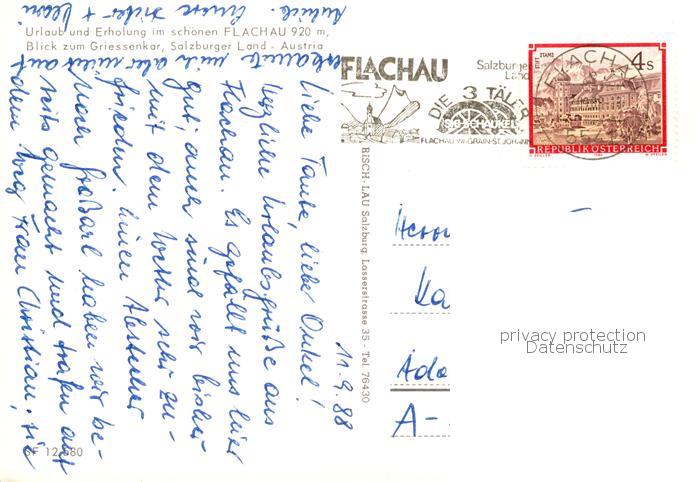 Urlaub und Erholung im schönen FLACHAU 920 m,
Blick zum Griessenkar, Salzburger Land - Austria
FLACHAU
Salzburger
Land
DIE 3 TÄLER
SKI-SCHAUKEL
FLACHAU-WAGRAIN-ST.JOHANN
FLACHAU
STIFT STAMS
4 S
REPUBLIK ÖSTERREICH
RISCH-LAU Salzburg, Lasserstrasse 35 - Tel. 76430
11.9.88
Liebe Tante, lieber Onkel!
Herzliche Urlaubsgrüße aus
Flachau. Es gefällt uns hier
gut, auch sind wir bisher
mit dem Wetter sehr zu-
frieden. Einen Abstecher
nach Großarl haben wir be-
reits gemacht und trafen auf
dem Weg Frau Christian, sie
erkannte mich aber nicht auf
Herrn
Ka
Ado
A-
SF 12 680
privacy protection
Datenschutz